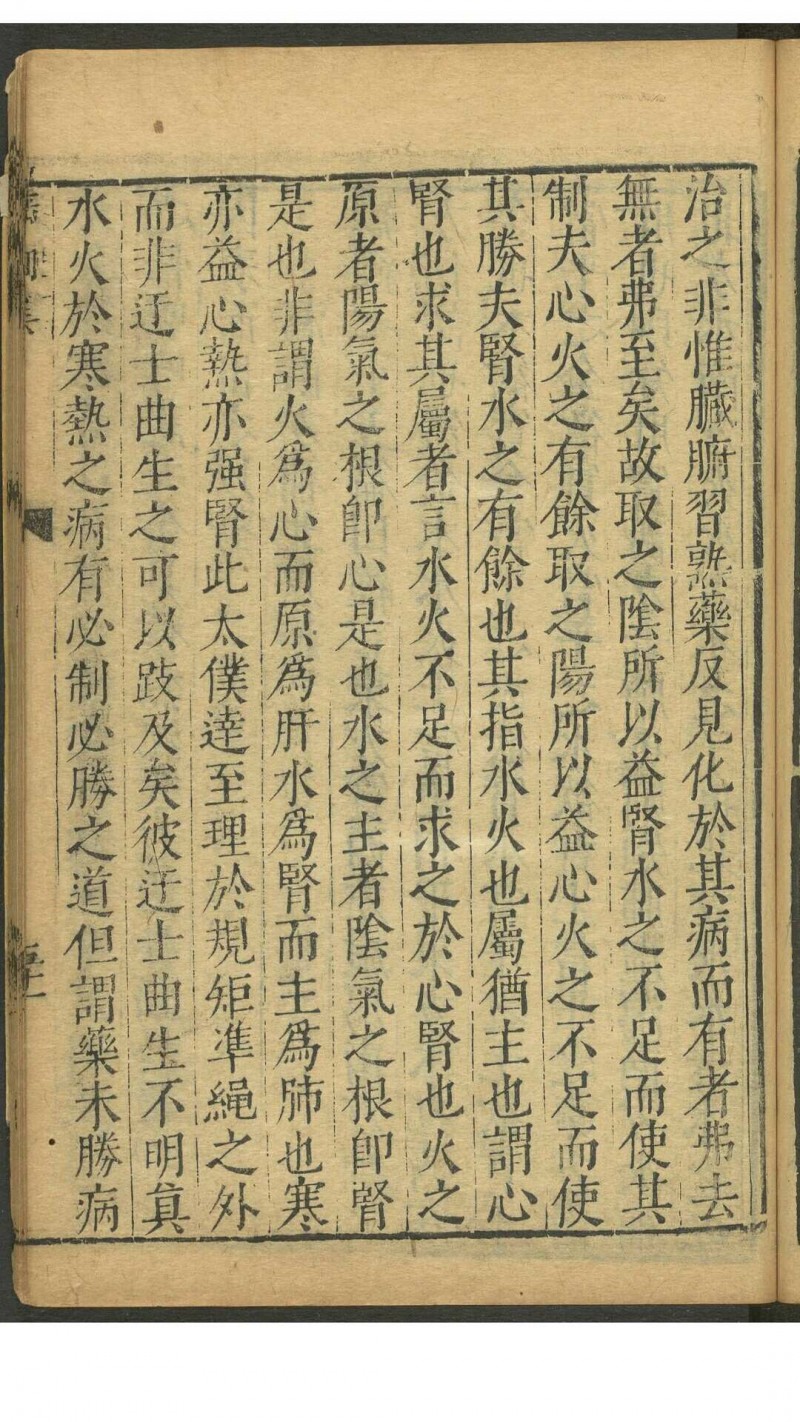 治之非惟臟腑習熟藥反見化於其病而有者弗去
無者弗至矣故取之陰所以益腎水之不足而使其
制夫心火之有餘取之陽所以益心火之不足而使
其勝夫腎水之有餘也其指水火也屬猶主也謂心
腎也求其屬者言水火不足而求之於心腎也火之
原者陽氣之根卽心是也水之主者陰氣之根卽腎
是也非謂火爲心而原爲肝水爲腎而主爲肺也寒
亦益心熱亦强腎此太僕達至理於規矩準繩之外
而非迂士曲生之可以跂及矣彼迂士曲生不明眞
水火於寒熱之病有必制必勝之道但謂藥未勝病